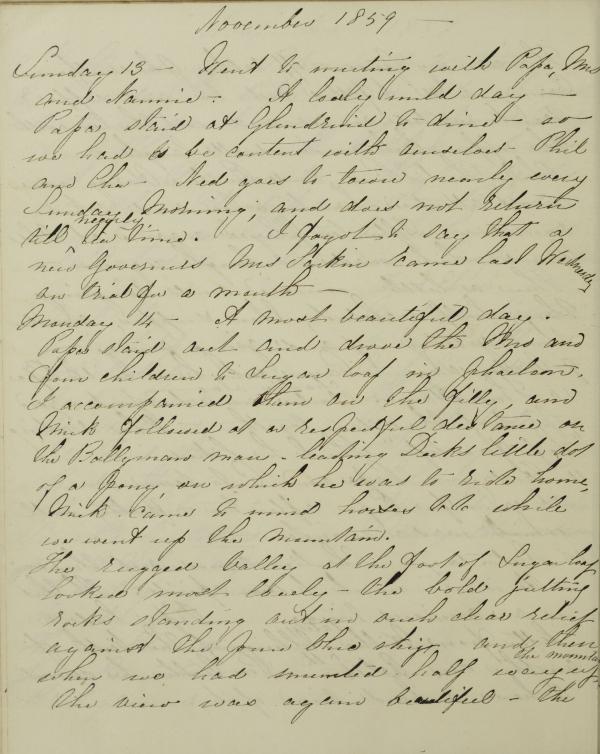 November 1859 —
Sunday 13 — Went to meeting with Papa, Mrs
and Nannie - A lovely mild day —
Papa staid at Glendruid to dine - so
we had to be content with ourselves - Phil
and Cha - Ned goes to town nearly every
Sunday Morning, and does not return
till tea time. I forgot to say that a
new Governess Mrs came last Wednesday
on trial for a month —
Monday 14 - A most beautiful day.
Papa staid out and drove the Mrs and
four children to Sugar loaf in phaeton.
I accompanied them on the filly, and
Mick followed at a respectful distance on
the Ballyman mare - leading Dicks little dot
of a pony on which he was to ride home,
Mick came to mind horses &c while
we went up the mountain.
The rugged valley at the foot of Sugar loaf
looked most lovely - the bold jutting
rocks standing out in such clear relief
against the pure blue sky. and then
when we had mounted half way up the mountain
the view was again beautiful - the